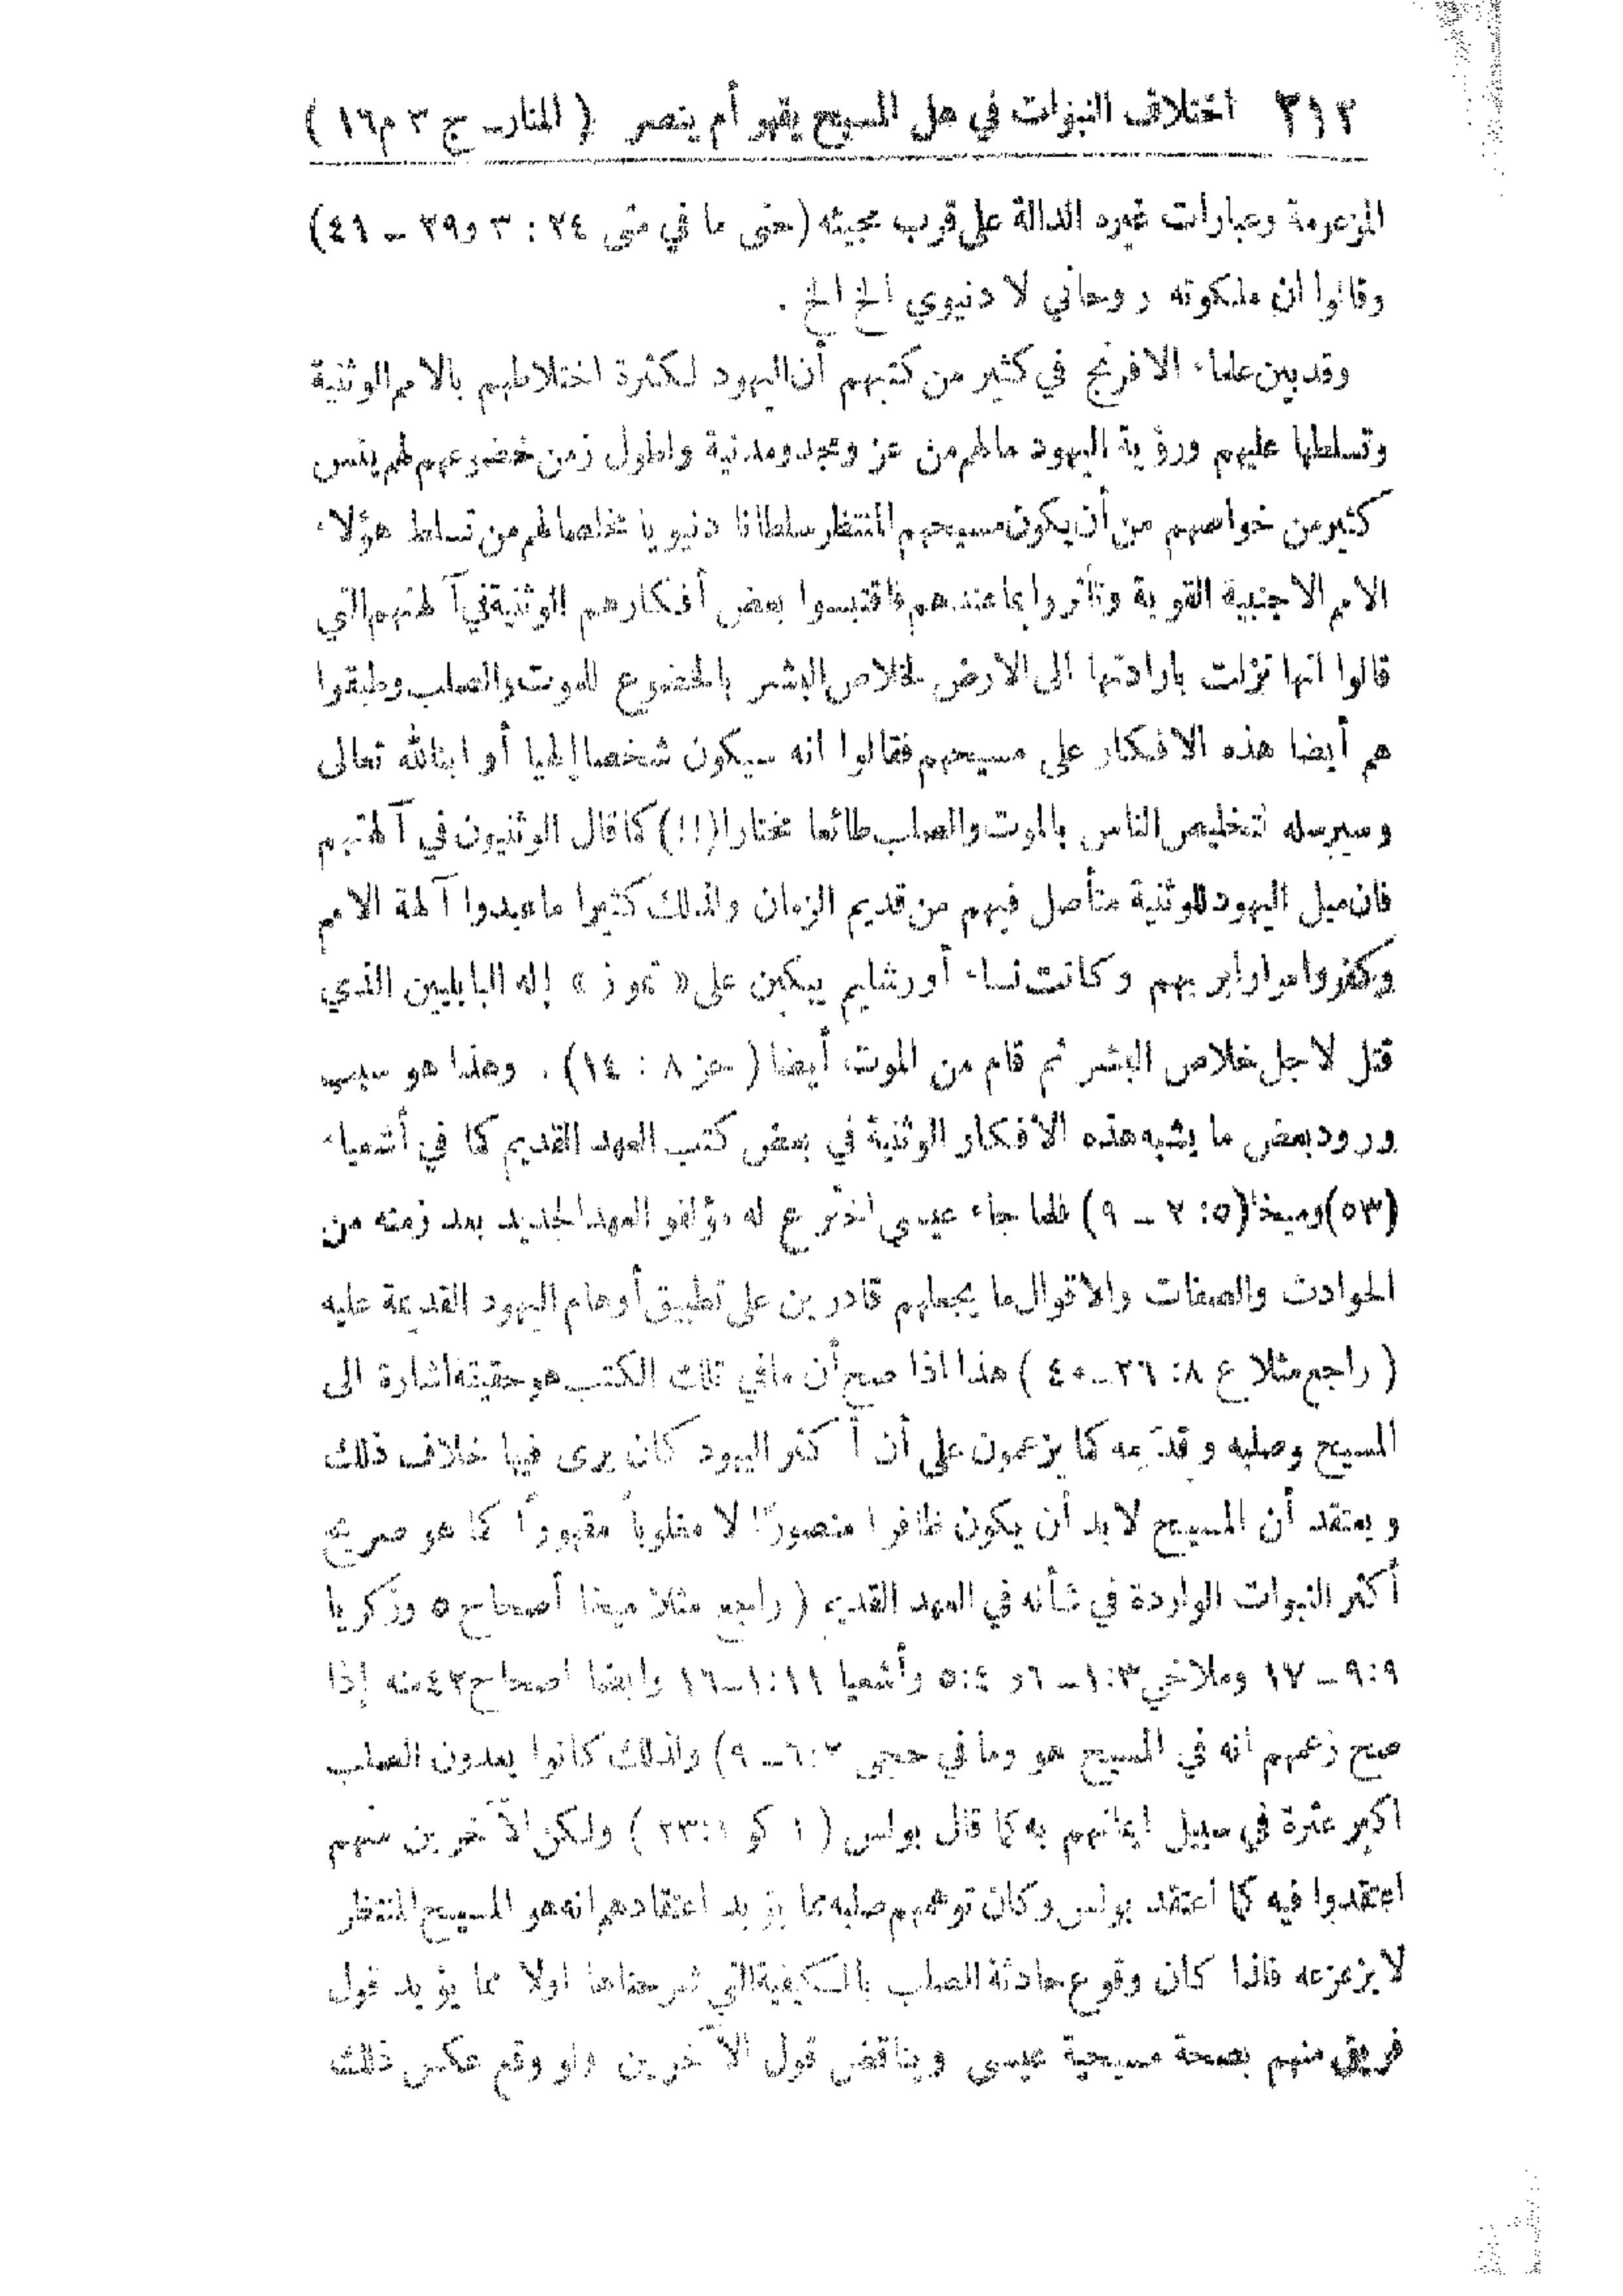 ٢١٢ اختلاف النبوات في هل المسيح يقهر أم ينصر ( المنار ـ ج ٣ م ١٦ )
المزعومة وعبارات غيره الدالة على قرب مجيئه (حتى ما في متى ٢٤ : ٣ و ٢٩ ـ ٤١)
وقالوا ان ملكوته روحاني لا دنيوي الخ الخ .
وقد بين علماء الافرنج في كثير من كتبهم أن اليهود لكثرة اختلاطهم بالامم الوثنية
وتسلطها عليهم ورؤية اليهود ما لهم من عز ومجد ومدنية ولطول زمن خضوعهم لهم يئس
كثير من خواصهم من أن يكون مسيحهم المنتظر سلطانا دنيويا مخلصا لهم من تسلط هؤلاء
الامم الاجنبية القوية وتأثروا بما عندهم فاقتبسوا بعض أفكارهم الوثنية في آلهتهم التي
قالوا انها نزلت بارادتها الى الارض لخلاص البشر بالخضوع للموت والصلب وطبقوا
هم أيضا هذه الافكار على مسيحهم فقالوا انه سيكون شخصا إلهيا أو ابنا لله تعالى
وسيرسله لتخليص الناس بالموت والصلب طائعا مختارا (!!) كما قال الوثنيون في آلهتهم
فان ميل اليهود للوثنية متأصل فيهم من قديم الزمان ولذلك كثيرا ما عبدوا آلهة الامم
وكفروا مرارا بربهم وكانت نساء أورشليم يبكين على « تموز » إله البابليين الذي
قتل لاجل خلاص البشر ثم قام من الموت أيضا ( حز ٨ : ١٤) . وهذا هو سبب
ورود بعض ما يشبه هذه الافكار الوثنية في بعض كتب العهد القديم كما في أشعياء
(٥٣) وميخا (٥: ٢ ـ ٩) فلما جاء عيسى اخترع له مؤلفو العهد الجديد بعد زمنه من
الحوادث والصفات والاقوال ما يجعلهم قادرين على تطبيق أوهام اليهود القديمة عليه
( راجع مثلا ع ٨: ٢٦ـ ٤٠ ) هذا اذا صح أن ما في تلك الكتب هو حقيقة اشارة الى
المسيح وصلبه وقدَمه كما يزعمون على أن أكثر اليهود كان يرى فيها خلاف ذلك
ويعتقد أن المسيح لا بد أن يكون ظافرا منصورًا لا مغلوباً مقهوراً كما هو صريح
أكثر النبوات الواردة في شأنه في العهد القديم ( راجع مثلا ميخا أصحاح ٥ وزكريا
٩:٩ ـ ١٧ وملاخي ١:٣ ـ ٦ و ٥:٤ وأشعيا ١:١١ـ١٦ وايضا اصحاح ٤٢ منه إذا
صح زعمهم انه في المسيح هو وما في حجى ٦:٢ ـ ٩) ولذلك كانوا يعدون الصلب
اكبر عثرة في سبيل ايمانهم به كما قال بولس ( ١ كو ٢٣:١ ) ولكن الآخرين منهم
اعتقدوا فيه كما اعتقد بولس وكان توهمهم صلبه مما يؤيد اعتقادهم انه هو المسيح المنتظر
لا يزعزعه فاذا كان وقوع حادثة الصلب بالكيفية التي شرحناها اولا مما يؤيد قول
فريق منهم بصحة مسيحية عيسى ويناقض قول الآخرين ولو وقع عكس ذلك